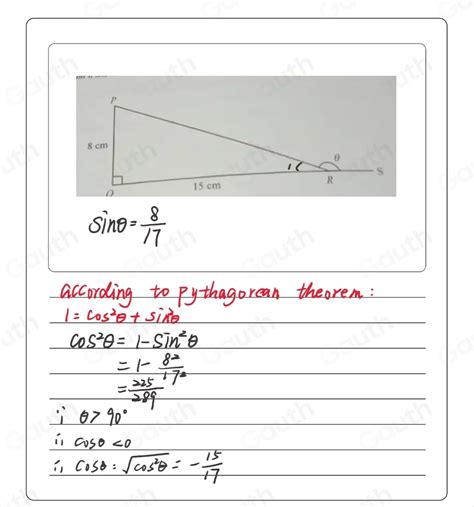 P
8 cm
θ
R
S
Q
15 cm
sinθ = 8/17
According to pythagorean theorem:
1 = cos²θ + sin²θ
cos²θ = 1 - sin²θ
= 1 - 8²/17²
= 225/289
∵ θ > 90°
∴ cosθ < 0
∴ cosθ = √cos²θ = - 15/17